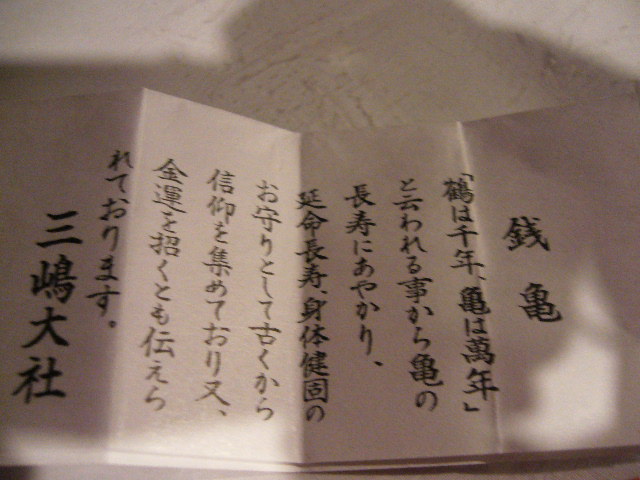 銭亀
「鶴は千年、亀は萬年」
と云われる事から亀の
長寿にあやかり、
延命長寿、身体健固の
お守りとして古くから
信仰を集めており又、
金運を招くとも伝えら
れております。
三嶋大社